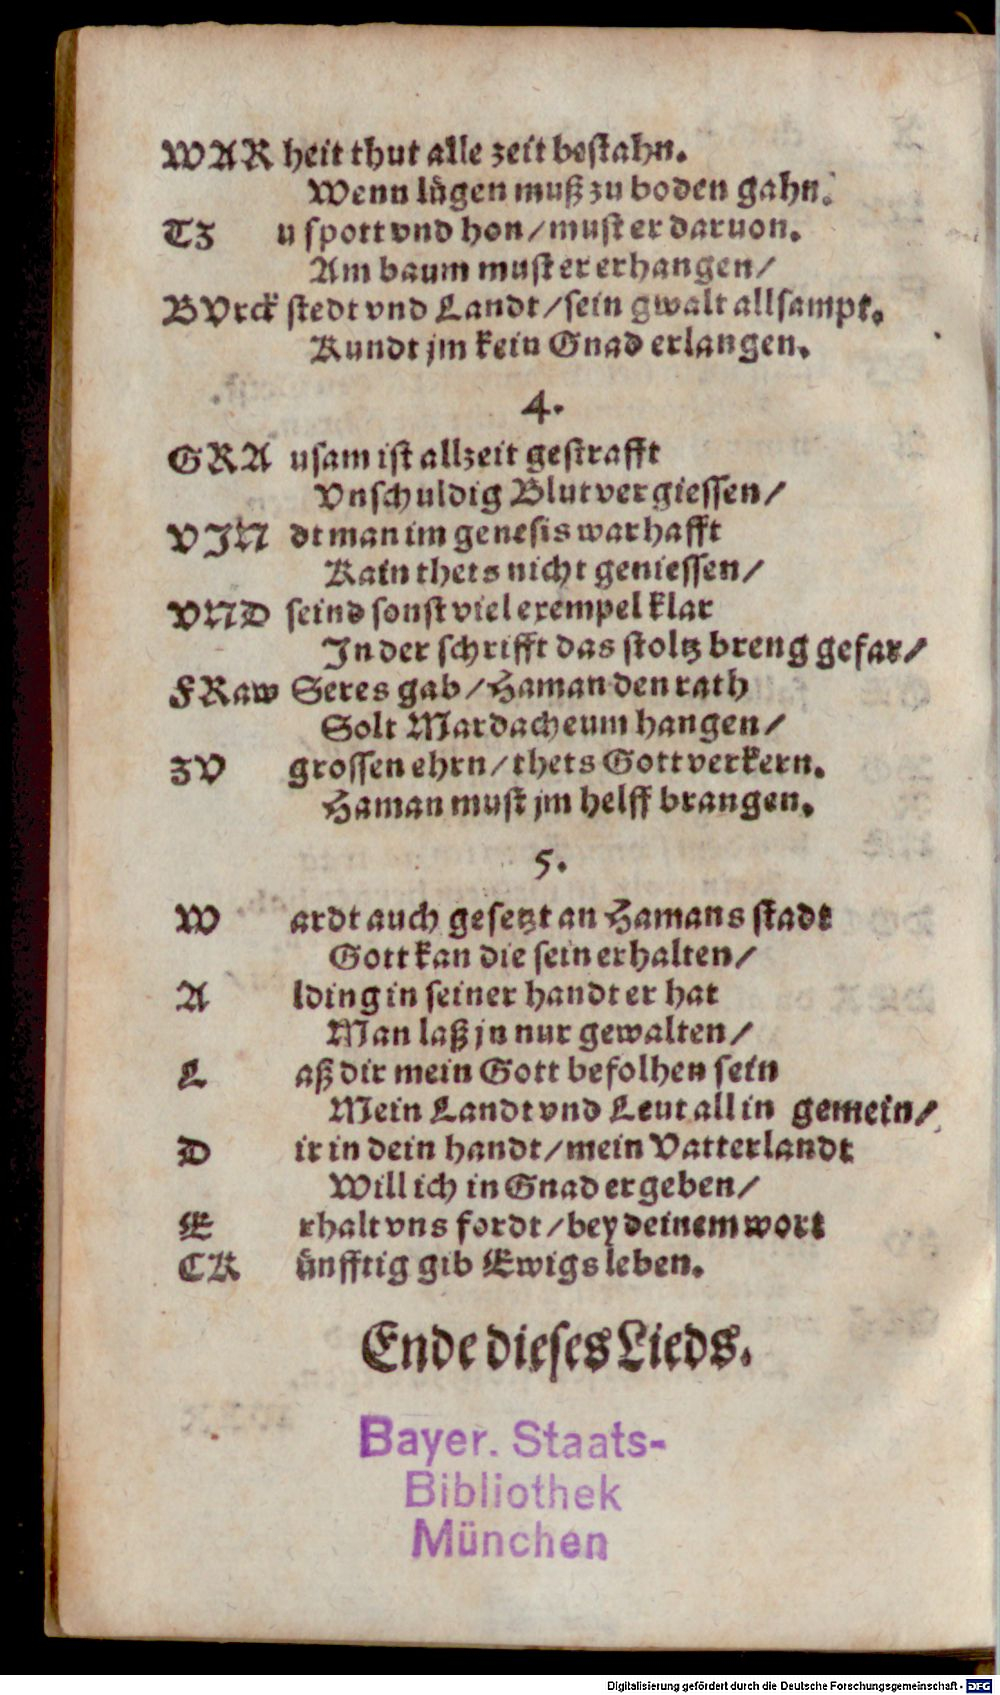 WAR heit thut alle zeit bestahn.
Wenn lügen muß zu boden gahn.
TZ u spott vnd hon/must er daruon.
Am baum must er erhangen/
BVrck stedt vnd Landt/sein gwalt allsampt.
Kundt jm kein Gnad erlangen.
4.
GRA usam ist allzeit gestrafft
Vnschuldig Blut vergiessen/
VIN dt man im genesis warhafft
Kain thets nicht geniessen/
VND seind sonst viel exempel klar
In der schrifft das stoltz breng gefar/
FRaw Seres gab/Haman den rath
Solt Mardacheum hangen/
ZV grossen ehrn/thets Gott verkern.
Haman must jm helff brangen.
5.
W ardt auch gesetzt an Hamans stadt
Gott kan die sein erhalten/
A lding in seiner handt er hat
Man laß jn nur gewalten/
L aß dir mein Gott befolhen sein
Mein Landt vnd Leut all in gemein/
D ir in dein handt/mein Vatterlandt
Will ich in Gnad ergeben/
E rhalt vns fordt/bey deinem wort
CK ünfftig gib Ewigs leben.
Ende dieses Lieds.
Bayer. Staats-
Bibliothek
München
Digitalisierung gefördert durch die Deutsche Forschungsgemeinschaft - DFG